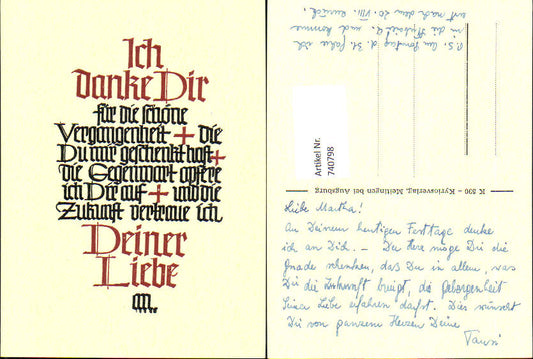 Ich
danke Dir
für die schöne
Vergangenheit + die
Du mir geschenkt hast +
die Gegenwart opfere
ich Dir auf + und die
Zukunft vertraue ich
Deiner
Liebe
P.S. Am Sonntag d. 31. fahre ich
in die und komme
erst nach dem 20. VIII. zurück.
Artikel Nr.
740798
K 800 – Kyriosverlag, Meitingen bei Augsburg
Liebe Martha!
An Deinem heutigen Festtage denke
ich an Dich. – Der Herr möge Dir die
Gnade schenken, das Du in allem, was
Dir die Zukunft bringt, die Geborgenheit
Seiner Liebe erfahren darfst. Dies wünscht
Dir von ganzem Herzen Deine